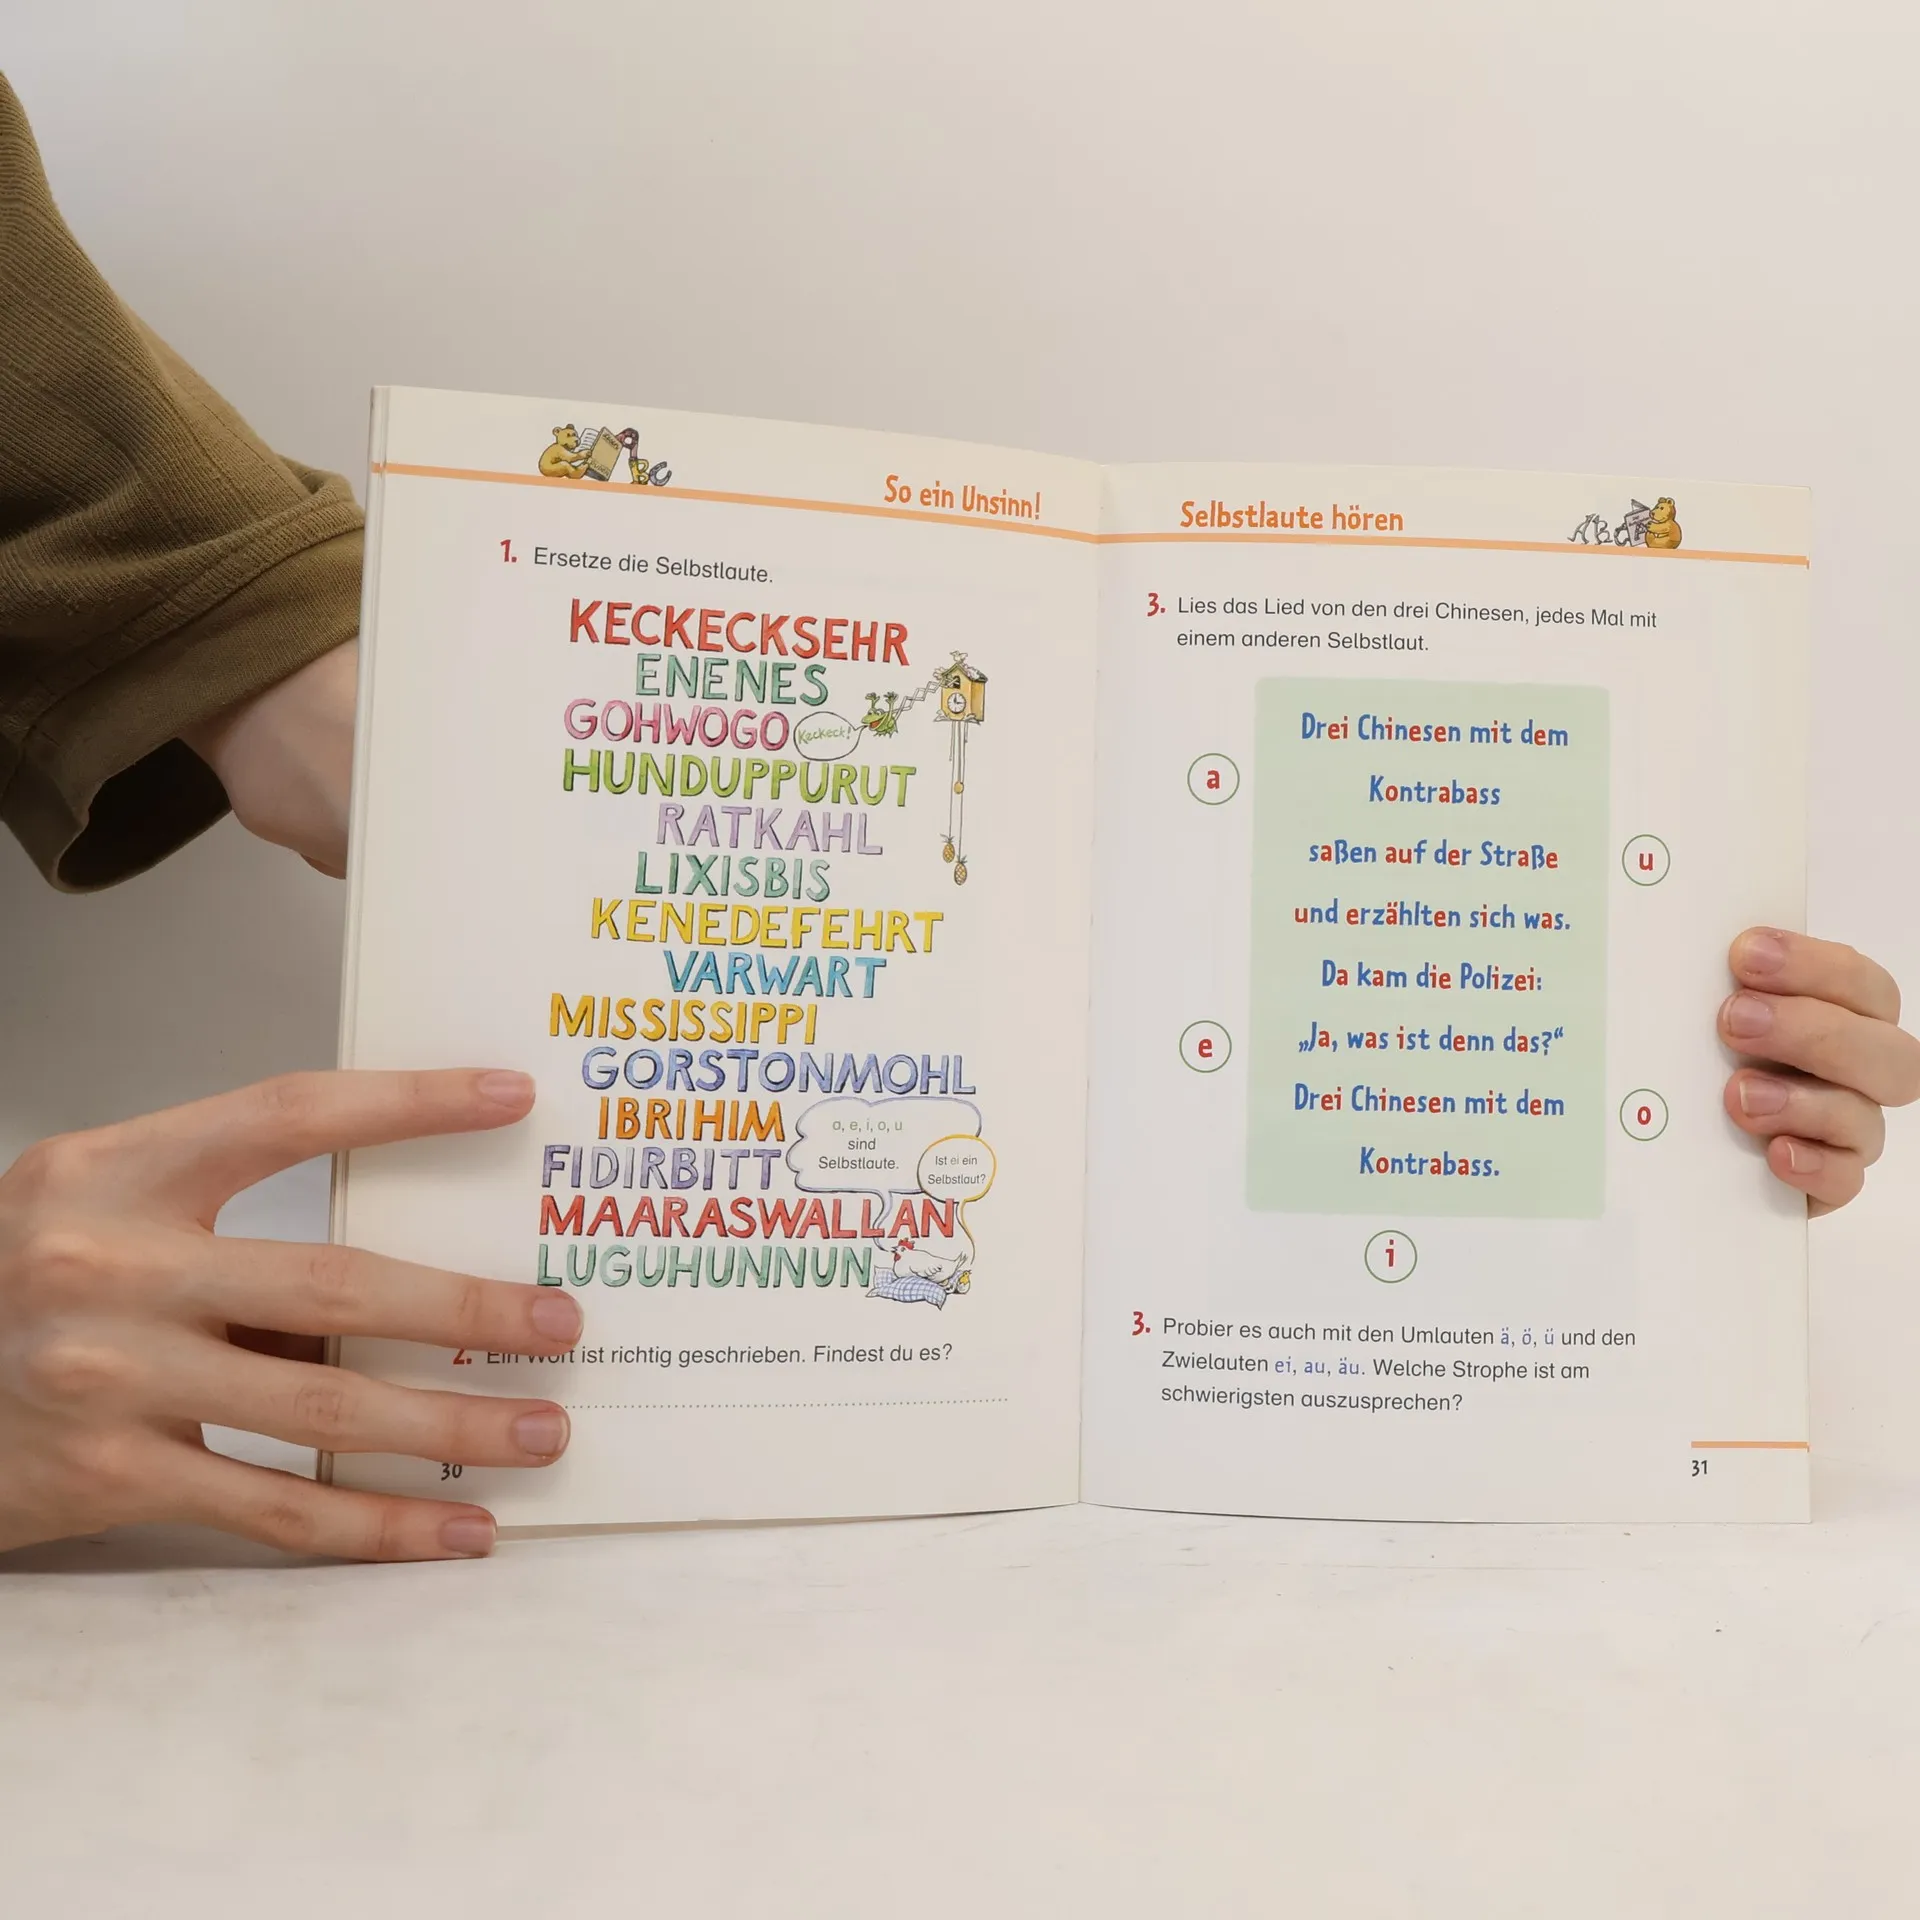 So ein Unsinn!
1. Ersetze die Selbstlaute.
KECKECKSEHR
ENENES
GOHWOGO
Keckeck!
HUNDUPPURUT
RATKAHL
LIXISBIS
KENEDEFEHRT
VARWART
MISSISSIPPI
GORSTONMOHL
IBRIHIM
a, e, i, o, u
sind
Selbstlaute.
Ist ei ein
Selbstlaut?
FIDIRBITT
MAARASWALLAN
LUGUHUNNUN
2. Ein Wort ist richtig geschrieben. Findest du es?
30
Selbstlaute hören
ABC
3. Lies das Lied von den drei Chinesen, jedes Mal mit
einem anderen Selbstlaut.
Drei Chinesen mit dem
Kontrabass
saßen auf der Straße
und erzählten sich was.
Da kam die Polizei:
„Ja, was ist denn das?“
Drei Chinesen mit dem
Kontrabass.
a
u
e
o
i
3. Probier es auch mit den Umlauten ä, ö, ü und den
Zwielauten ei, au, äu. Welche Strophe ist am
schwierigsten auszusprechen?
31